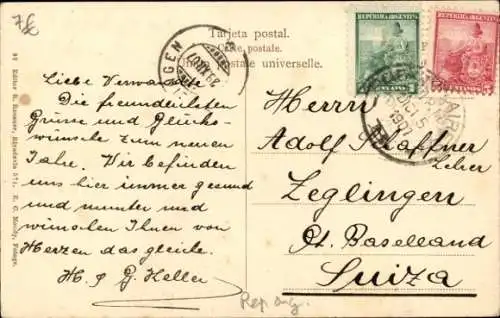 78
Tarjeta postal.
Carte postale.
postale universelle.
REPUBLICA ARGENTINA
REPUBLICA ARGENTINA
1
5
GEN
AIRES
DIC 5
1907
Liebe Verwandte
Die freundlichsten
Grüsse und Glücks-
wünsche zum neuen
Jahre. Wir befinden
uns hier immer gesund
und munter und
wünschen Ihnen von
Herzen das gleiche.
H. & G. Heller
Herrn
Adolf Schaffner
Lehrer
Zeglingen
Ct. Baselland
Suiza
Rep. Arg.
Editor R. Rosauer, Rivadavia 571.